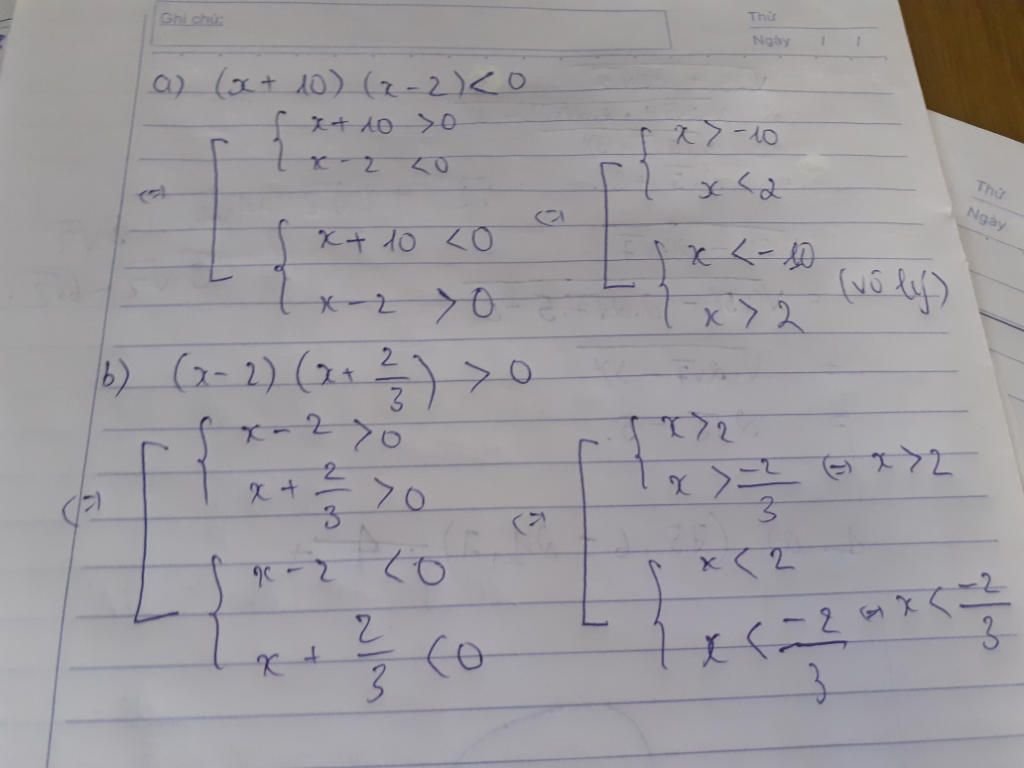 Ghi chú:
Thứ
Ngày / /
a) (x + 10) (x - 2) < 0
<=> [ { x + 10 > 0
x - 2 < 0
{ x + 10 < 0
x - 2 > 0
<=> [ { x > -10
x < 2
{ x < -10
x > 2 (vô lý)
b) (x - 2) (x + 2/3) > 0
<=> [ { x - 2 > 0
x + 2/3 > 0
{ x - 2 < 0
x + 2/3 < 0
<=> [ { x > 2
x > -2/3 <=> x > 2
{ x < 2
x < -2/3 <=> x < -2/3
Thứ
Ngày